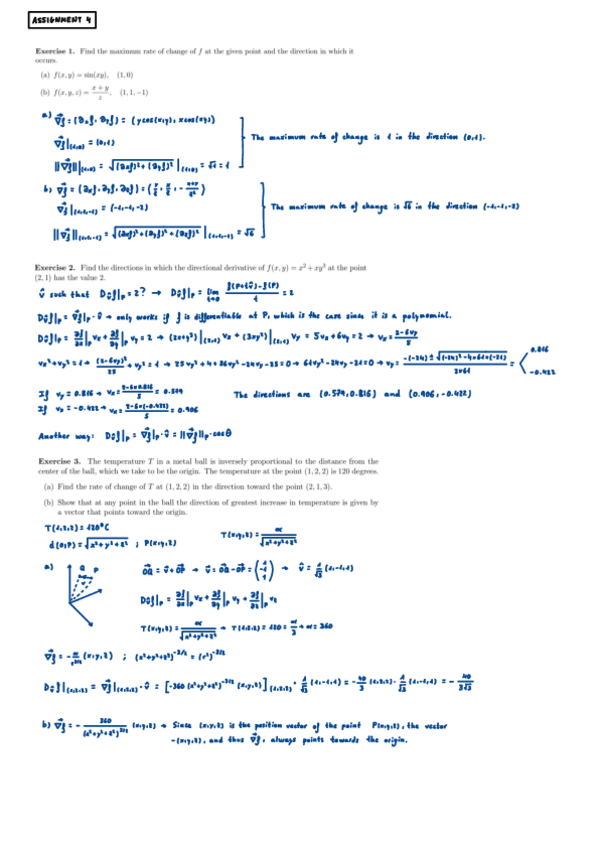 ASSIGNMENT 4
Exercise 1. Find the maximum rate of change of f at the given point and the direction in which it
occurs.
(a) f(x, y) = sin(xy), (1, 0)
(b) f(x, y, z) = (x + y)/z, (1, 1, −1)
a) ∇⃗f = (∂xf, ∂yf) = (y cos(xy), x cos(xy))
∇⃗f|(1,0) = (0,1)
The maximum rate of change is 1 in the direction (0,1).
||∇⃗f|||(1,0) = √((∂xf)²+(∂yf)²)|(1,0) = √1 = 1
b) ∇⃗f = (∂xf, ∂yf, ∂zf) = (1/z, 1/z, -(x+y)/z²)
∇⃗f|(1,1,-1) = (-1,-1,-2)
The maximum rate of change is √6 in the direction (-1,-1,-2)
||∇⃗f||(1,1,-1) = √((∂xf)²+(∂yf)²+(∂zf)²)|(1,1,-1) = √6
Exercise 2. Find the directions in which the directional derivative of f(x, y) = x² + xy³ at the point
(2, 1) has the value 2.
v̂ such that Dv̂f|P = 2? → Dv̂f|P = lim t→0 (f(P+tv̂)-f(P))/t = 2
Dv̂f|P = ∇⃗f|P · v̂ → only works if f is differentiable at P, which is the case since it is a polynomial.
Dv̂f|P = ∂f/∂x|P vx + ∂f/∂y|P vy = 2 → (2x+y³)|(2,1) vx + (3xy²)|(2,1) vy = 5vx + 6vy = 2 → vx = (2-6vy)/5
vx²+vy² = 1 → (2-6vy)²/25 + vy² = 1 → 25vy²+4+36vy²-24vy-25=0 → 61vy²-24vy-21=0 → vy = (-(-24)±√((-24)²-4·61·(-21)))/(2·61) = < 0.816
-0.422
If vy = 0.816 → vx = (2-6·0.816)/5 = 0.579
The directions are (0.579, 0.816) and (0.906, -0.422)
If vx = -0.422 → vx = (2-6·(-0.422))/5 = 0.906
Another way: Dv̂f|P = ∇⃗f|P · v̂ = ||∇⃗f||P · cosθ
Exercise 3. The temperature T in a metal ball is inversely proportional to the distance from the
center of the ball, which we take to be the origin. The temperature at the point (1, 2, 2) is 120 degrees.
(a) Find the rate of change of T at (1, 2, 2) in the direction toward the point (2, 1, 3).
(b) Show that at any point in the ball the direction of greatest increase in temperature is given by
a vector that points toward the origin.
T(1,2,2) = 120°C
T(x,y,z) = α/√(x²+y²+z²)
d(O,P) = √(x²+y²+z²) ; P(x,y,z)
a) Q P
OQ = v⃗ + OP → v⃗ = OQ - OP = (1 -1 1) → v̂ = 1/√3 (1,-1,1)
Dv̂f|P = ∂f/∂x|P vx + ∂f/∂y|P vy + ∂f/∂z|P vz
T(x,y,z) = α/√(x²+y²+z²) → T(1,2,2) = 120 = α/3 → α = 360
∇⃗f = -α/r^(3/2) (x,y,z) ; (x²+y²+z²)^(-3/2) = (r²)^(-3/2)
Dv̂f|(1,2,2) = ∇⃗f|(1,2,2) · v̂ = [-360 (x²+y²+z²)^(-3/2) (x,y,z)](1,2,2) · 1/√3 (1,-1,1) = -40/3 (1,2,2) · 1/√3 (1,-1,1) = -40/(3√3)
b) ∇⃗f = -360/(x²+y²+z²)^(3/2) (x,y,z) → Since (x,y,z) is the position vector of the point P(x,y,z), the vector
-(x,y,z), and thus ∇⃗f, always points towards the origin.